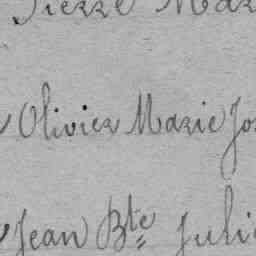 Pierre Mar
Olivier Marie Jos
Jean Bte Juli